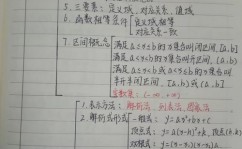 5. 三要素：定义域、对应关系、值域
6. 函数相等条件 定义域相等
对应关系一致
7. 区间概念
满足 a≤x≤b 的x集合叫闭区间, [a,b]
满足 a<x<b 的x集合叫开区间, (a,b)
满足 a≤x<b 或 a<x≤b 的x集合叫
半开半闭区间, [a,b) 或 (a,b]
实数集: (-∞, +∞)
1. 表示方法: 解析法、列表法、图象法
2. 解析式形式 一般式: y=ax²+bx+c
顶点式: y=a(x-h)²+k